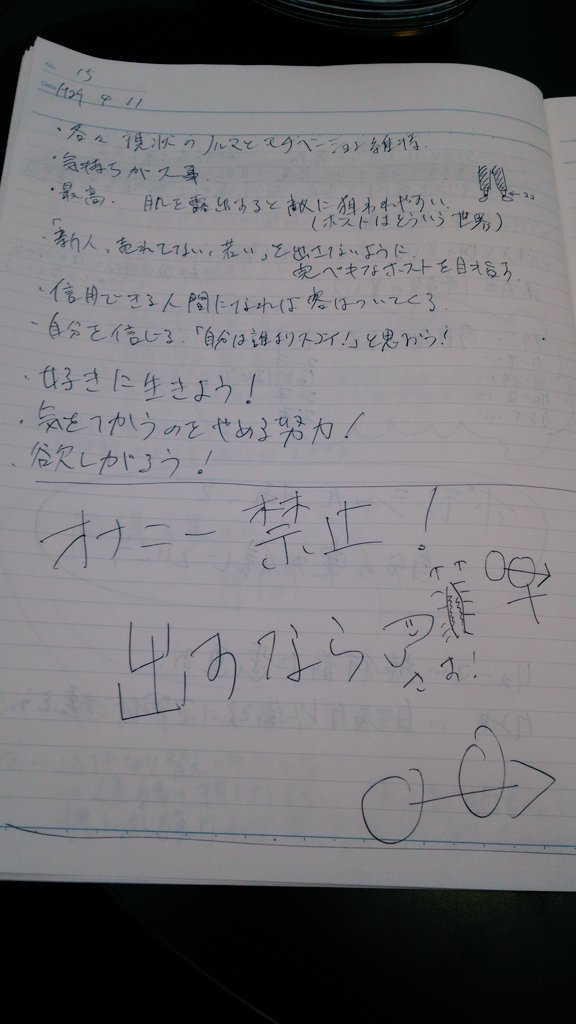 15
H29 4.11
・各々 現状のノルマとモチベーション維持.
・気持ちが大事
・最高. 肌を露出すると敵に狙われやすい.
(ホストはどういう世界)
・「新人、売れてない、若い」を出さないように
完ペキなホストを目指す.
・信用できる人間になれば客はついてくる
・自分を信じる.「自分は誰よりスゴイ!」と思おう!
・好きに生きよう!
・気をつかうのをやめる努力!
・欲しがろう!
オナニー禁止!
出すなら